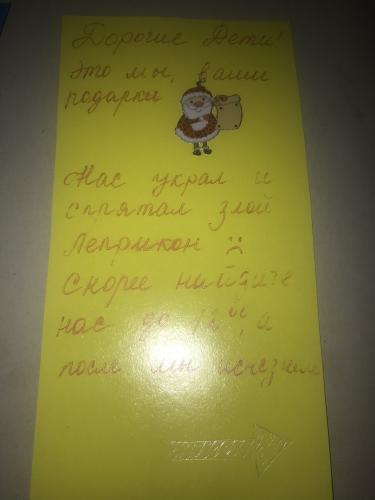 Дорогие Дети!
Это мы, ваши
подарки
Нас украл и
спрятал злой
Леприкон
Скорее найдите
нас до 12, а
после мы исчезнем